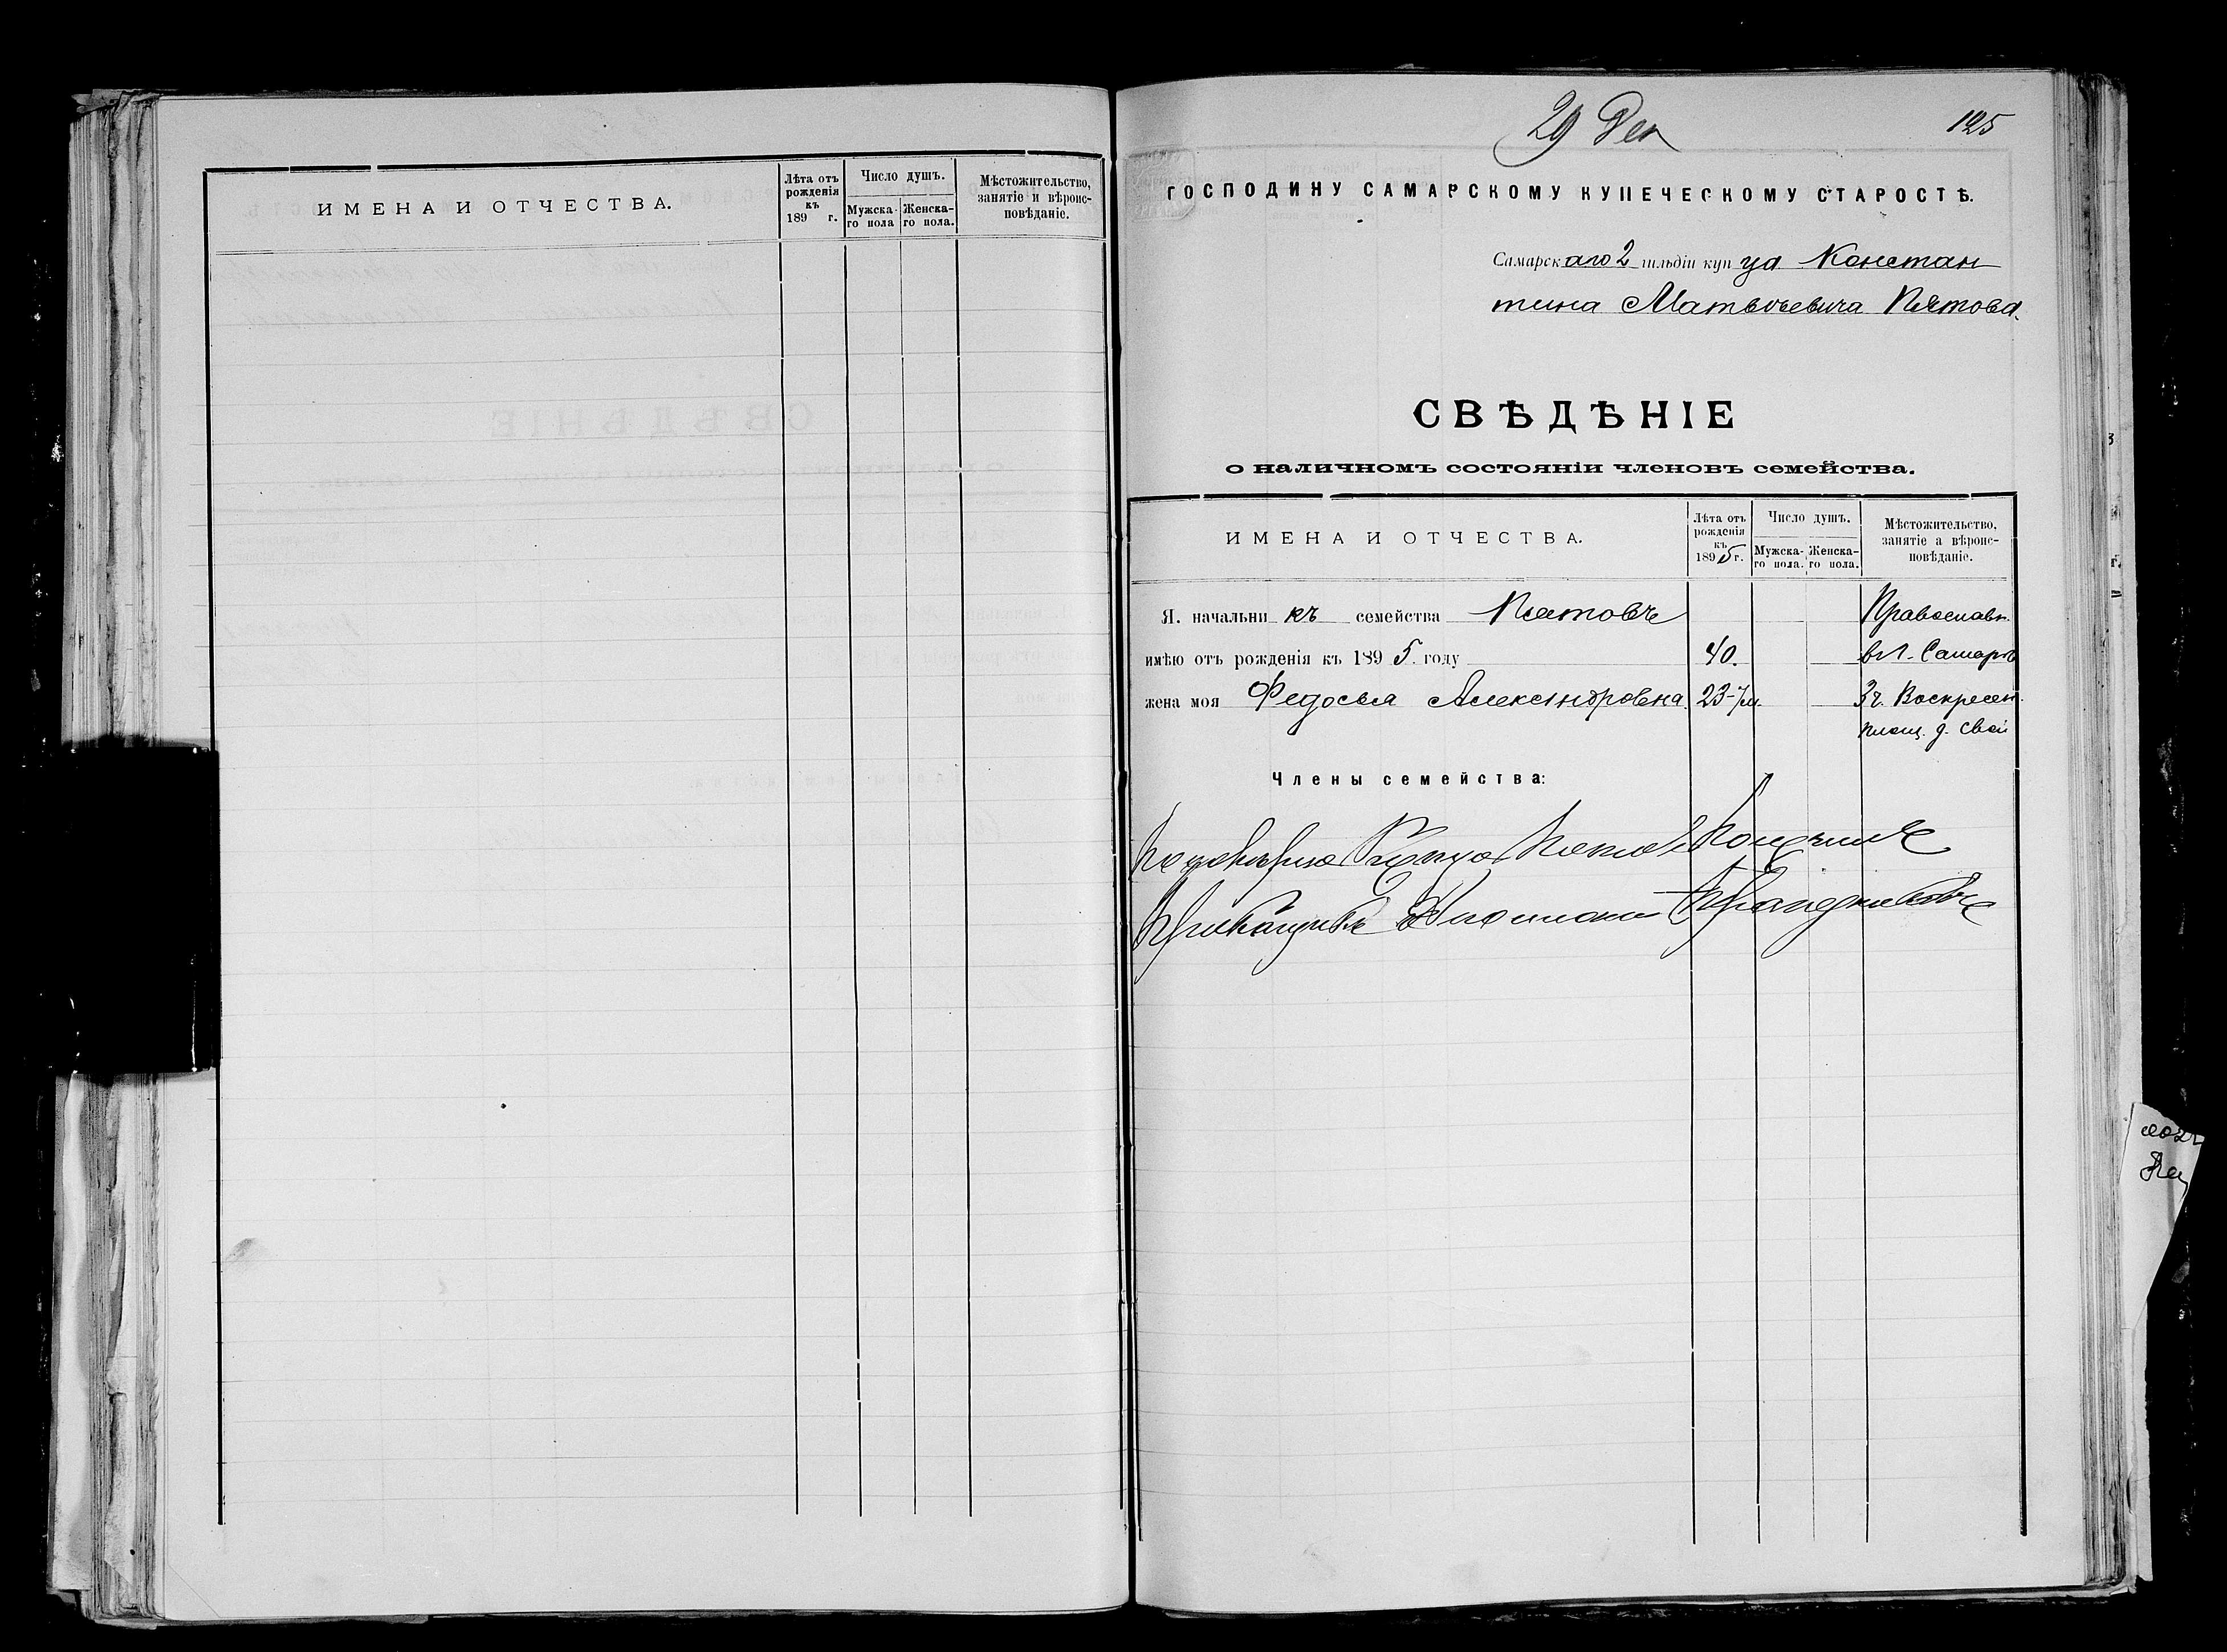 ИМЕНА И ОТЧЕСТВА.
Лѣта отъ рожденія къ 189 г.
Число душъ.
Мужска-го пола
Женска-го пола.
Мѣстожительство, занятіе и вѣроис-повѣданіе.
29 Дек
125
ГОСПОДИНУ САМАРСКОМУ КУПЕЧЕСКОМУ СТАРОСТѢ.
Самарскаго 2 гильдіи купца Констан
тина Матвѣевича Пятова.
СВѢДѢНІЕ
о наличномъ состояніи членовъ семейства.
ИМЕНА И ОТЧЕСТВА.
Лѣта отъ рожденія къ 1895 г.
Число душъ.
Мужска-го пола.
Женска-го пола.
Мѣстожительство, занятіе а вѣроис-повѣданіе.
Я. начальникъ семейства Пятовъ Православн.
имѣю отъ рожденія къ 1895 году 40. в г. Самарѣ
жена моя Федосья Александровна 23 3ч. Воскресен.
площ. д. свой
Члены семейства:
Прикащикъ